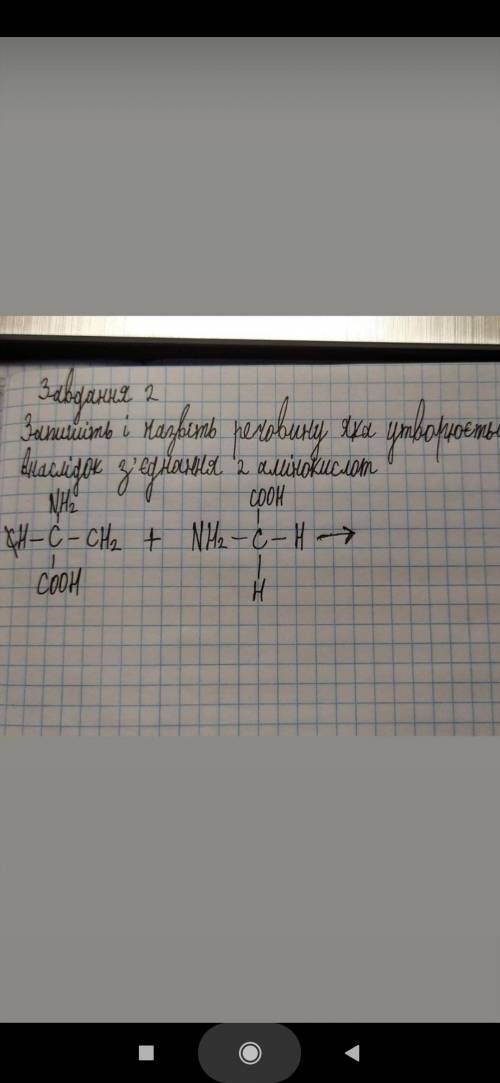 Завдання 2
Запишіть і назвіть речовину яка утворюєть
внаслідок з'єднання 2 амінокислот
NH2 COOH
H - C - CH2 + NH2 - C - H →
COOH H